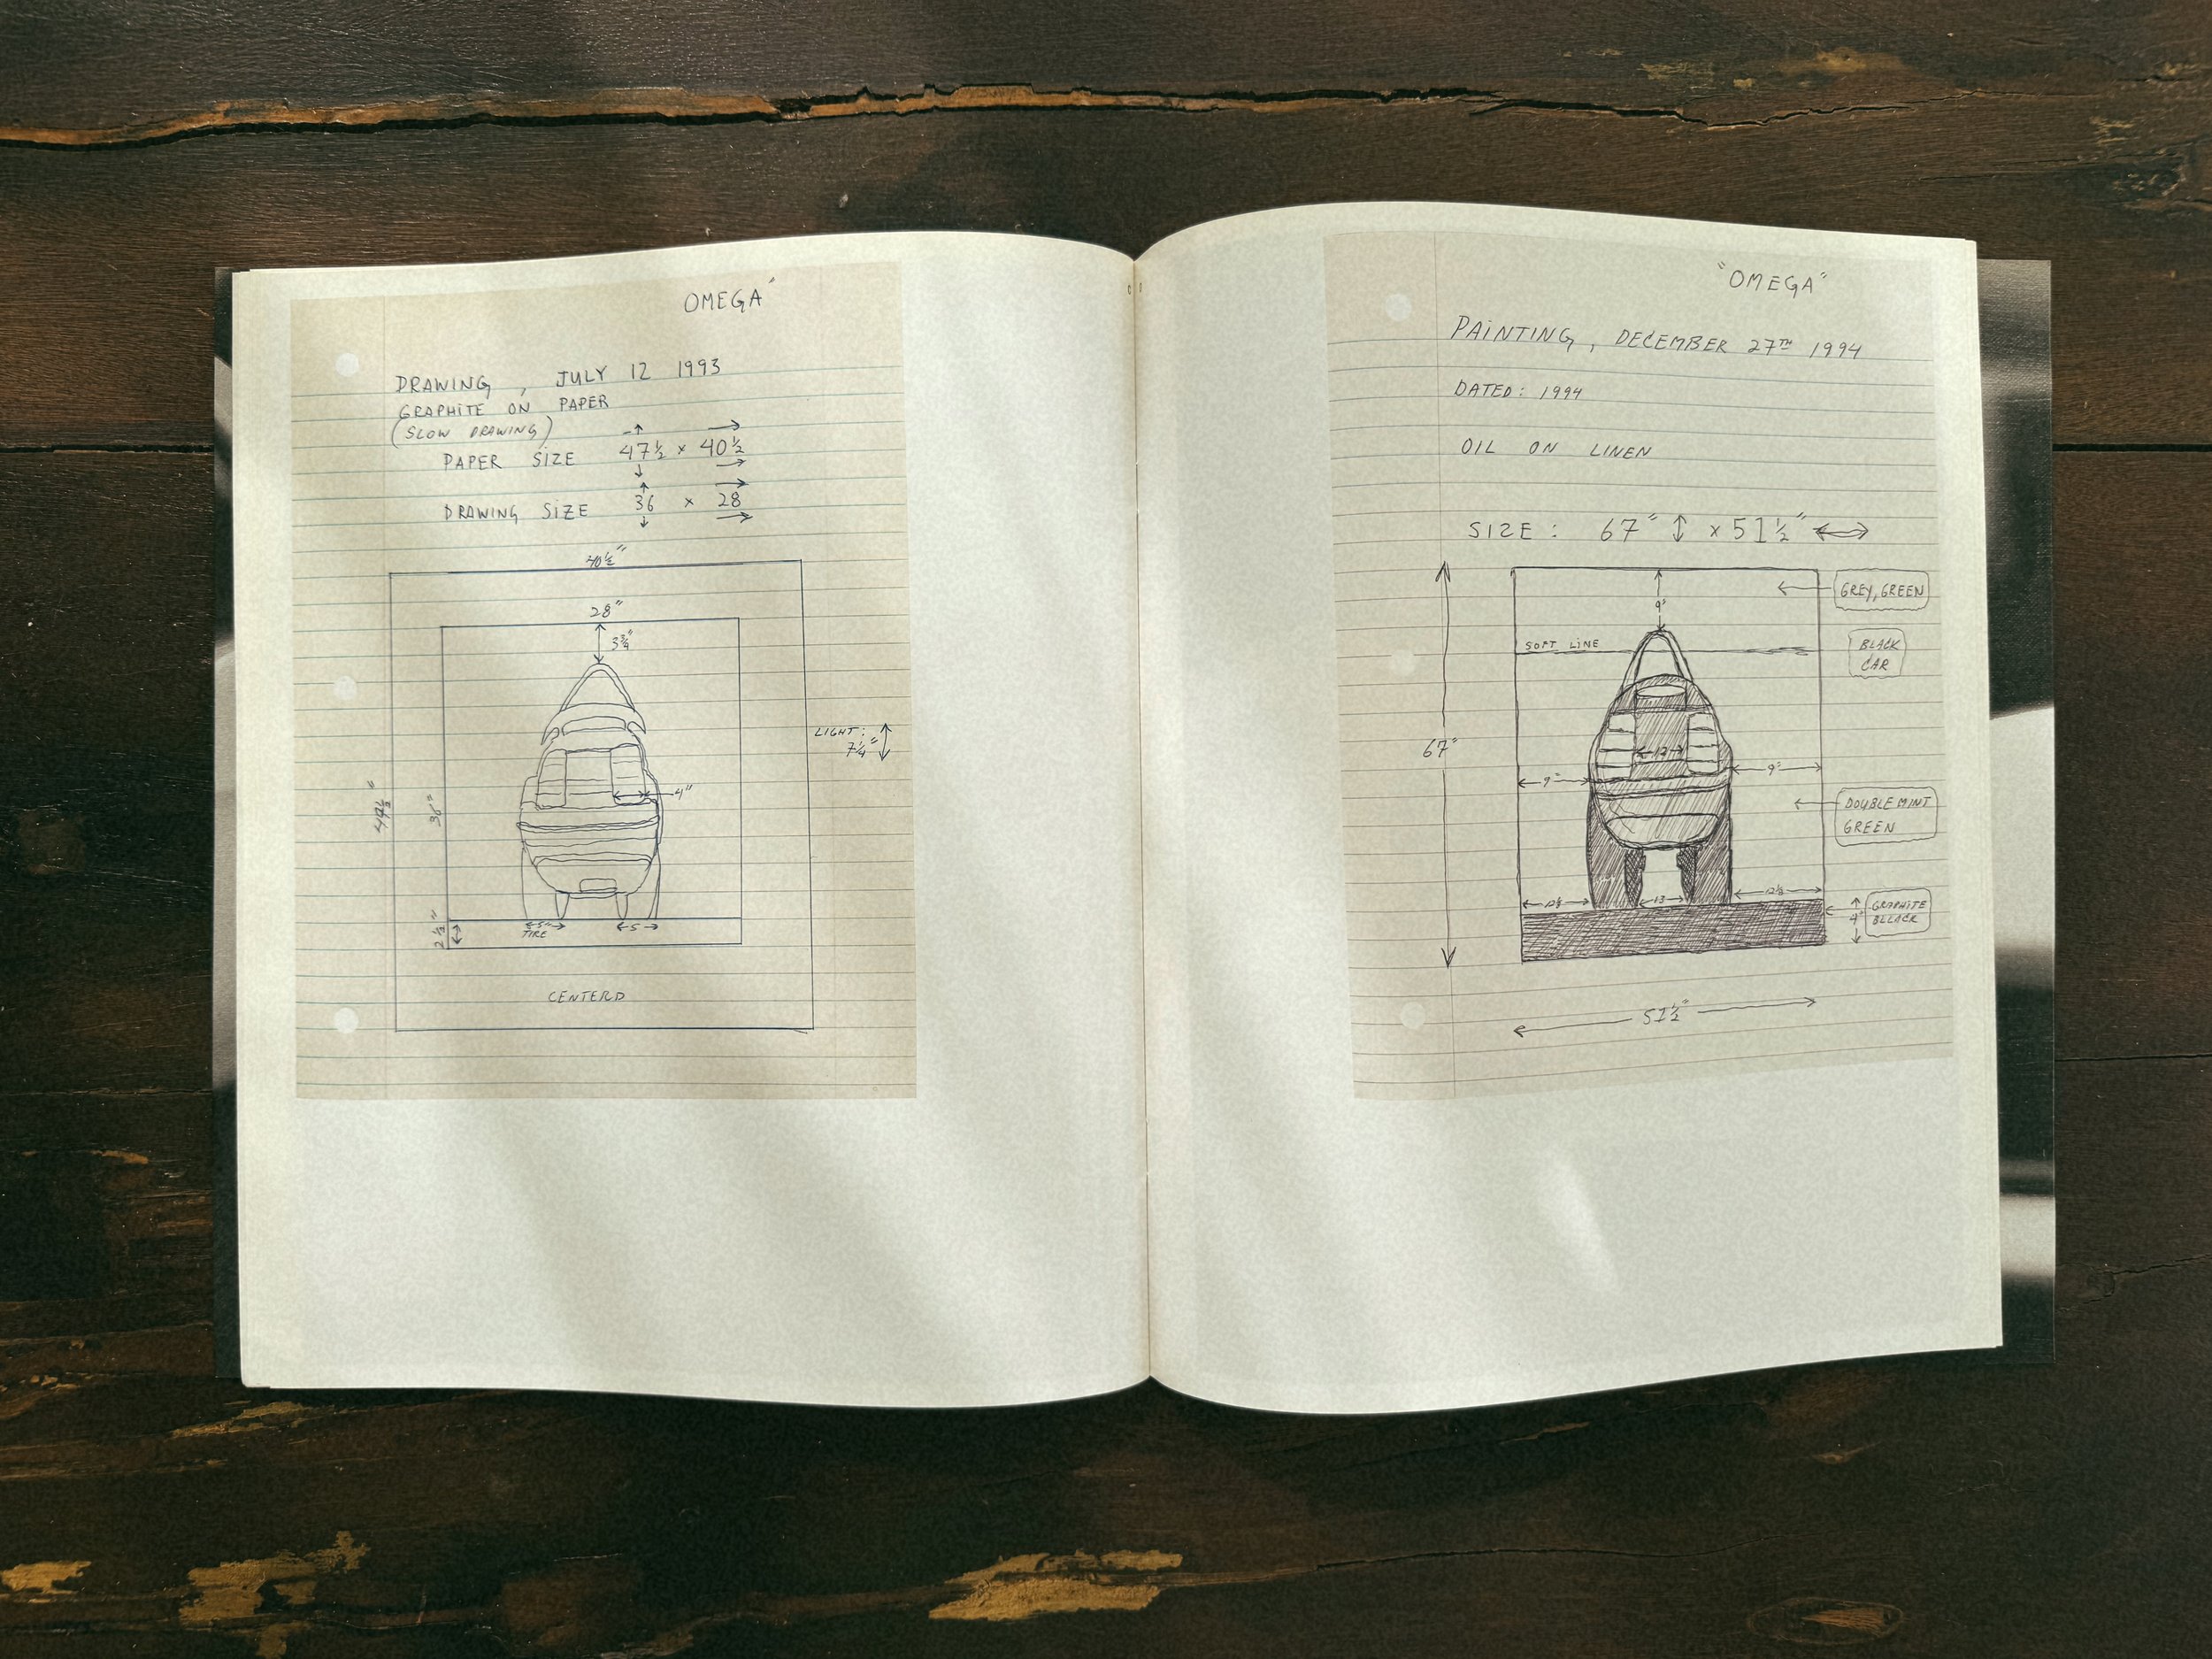 OMEGA"
DRAWING , JULY 12 1993
GRAPHITE ON PAPER
(SLOW DRAWING)
PAPER SIZE 47½ × 40½
DRAWING SIZE 36 × 28
40½"
28"
3¾"
LIGHT:
7¼"
4"
36"
2½"
5"
TIRE
5
CENTERD
"OMEGA"
PAINTING, DECEMBER 27TH 1994
DATED: 1994
OIL ON LINEN
SIZE: 67" × 51½"
9"
GREY, GREEN
SOFT LINE
BLACK
CAR
67"
12
9"
DOUBLE MINT
GREEN
13
4"
GRAPHITE
51½"